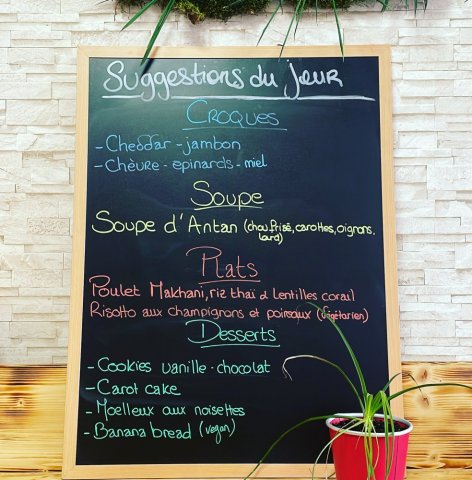 Suggestions du jour
Croques
- Cheddar - jambon
- Chèvre - epinards - miel
Soupe
Soupe d'Antan (chou frisé, carottes, oignons,
lard)
Plats
Poulet Makhani, riz thaï & lentilles corail
Risotto aux champignons et poireaux (végétarien)
Desserts
- Cookies vanille - chocolat
- Carot cake
- Moelleux aux noisettes
- Banana bread (vegan)